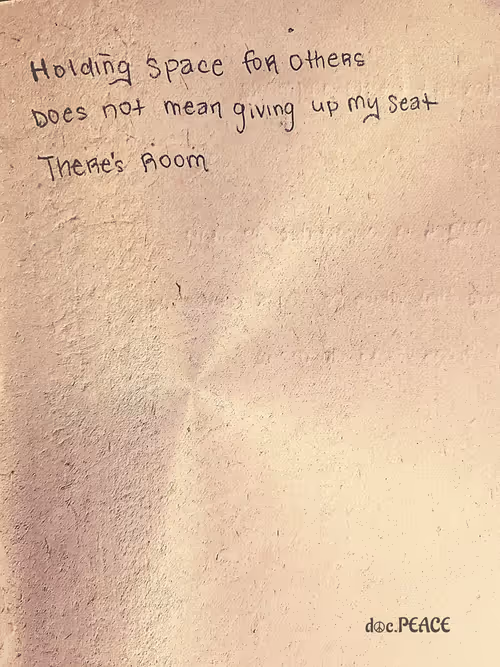 Holding Space for others
Does not mean giving up my seat
There's Room
doc.PEACE